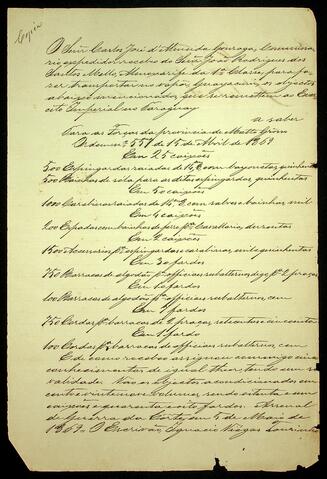 Copia
O Snr. Carlos José d'Almeida Gonzaga, Commissa-
rio expedidor recebeo do Snr. João Rodrigues dos
Santos Mello, Almoxarife da 1ª Classe, para fa-
zer transportar no vapor os objectos
abaixo mencionados que se remettem ao Exer-
cito Imperial no Paraguay
a saber
Para as Forças da provincia de Matto Grosso
Ordem nº 557 de 15 de Abril de 1869
Em 25 caixões
500 Espingardas raiadas de 14,8 com bayonetas, quinhentas
500 Bainhas de sola para as ditas espingardas, quinhentas
Em 50 caixões
1000 Carabinas raiadas de 14,8 com sabres bainhas, mil
Em 4 caixões
200 Espadas com bainhas de ferro pª Cavallaria, duzentas
Em 2 caixões
1500 Accessorios pª espingardas e carabinas, mil e quinhentos
Em 30 fardos
750 Barracas de algodão pª officiaes subalternos digo pª 2 praças
Em 10 fardos
100 Barracas de algodão pª officiaes subalternos, cem
Em 4 fardos
750 Cordas pª barracas de 2 praças, setecentos e cincoenta
Em 1 fardo
100 Cordas pª barracas de officiaes subalternos, cem
E de como recebeo assignou commigo cinco
conhecimentos de igual theor, tendo um só
validade. Vão os objectos acondicionados em
cento e vinte e seis volumes, sendo oitenta e um
caixões e quarenta e oito fardos. Arsenal
de Guerra da Corte, em 5 de Maio de
1869. O Escrivão, Ignacio Viegas Tourinho